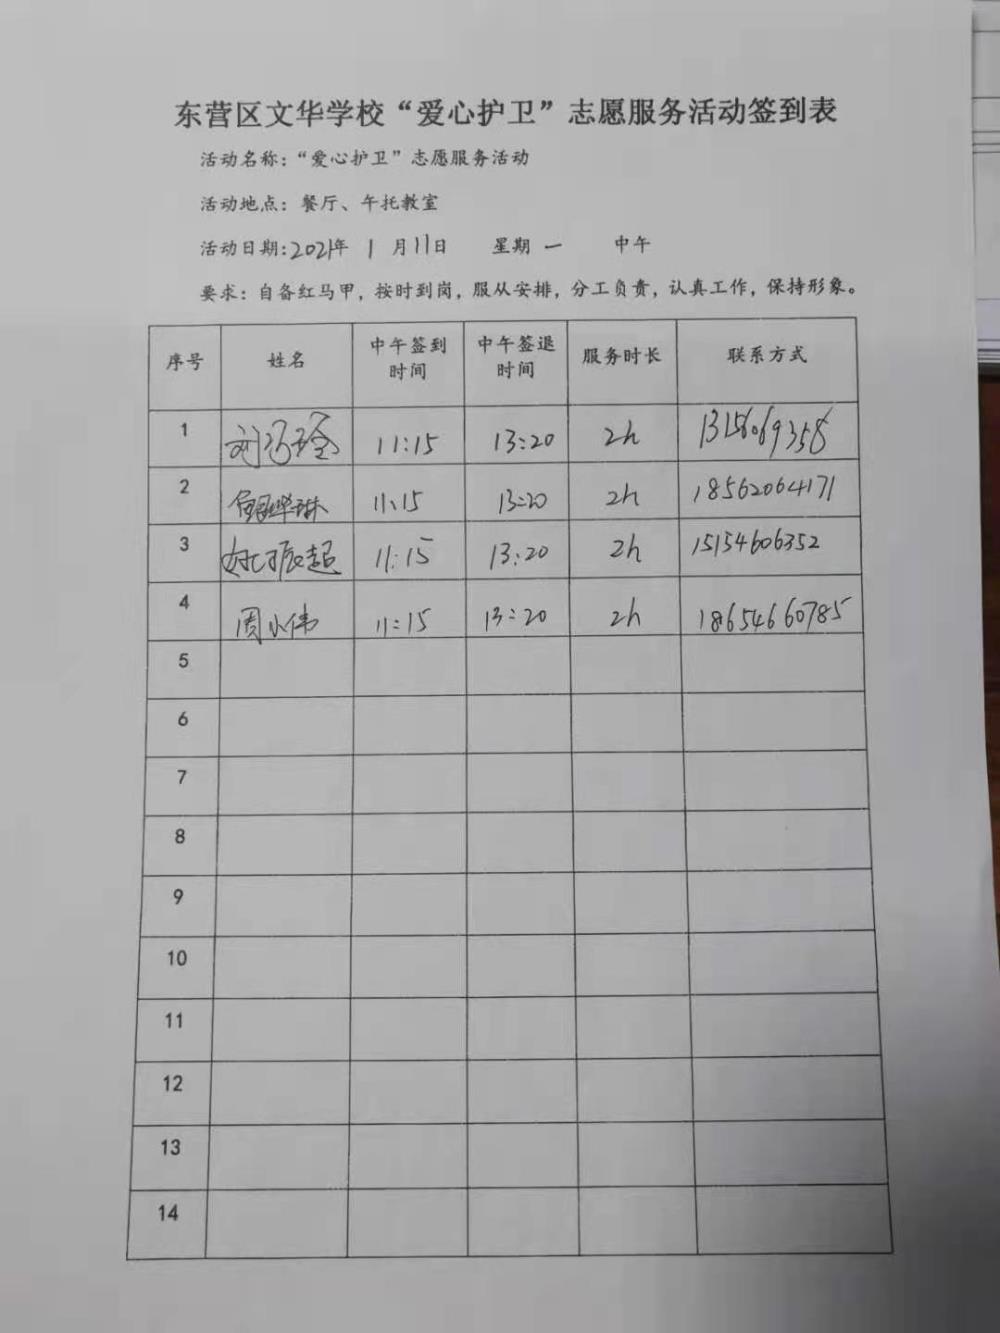 东营区文华学校“爱心护卫”志愿服务活动签到表
活动名称:“爱心护卫”志愿服务活动
活动地点: 餐厅、午托教室
活动日期:2021年 1 月11日 星期 一 中午
要求: 自备红马甲, 按时到岗, 服从安排, 分工负责, 认真工作, 保持形象。
序号 姓名 中午签到时间 中午签退时间 服务时长 联系方式
1 11:15 13:20 2h 13156069358
2 11:15 13:20 2h 18562064171
3 11:15 13:20 2h 15154606352
4 周小伟 11:15 13:20 2h 18654660785
5
6
7
8
9
10
11
12
13
14